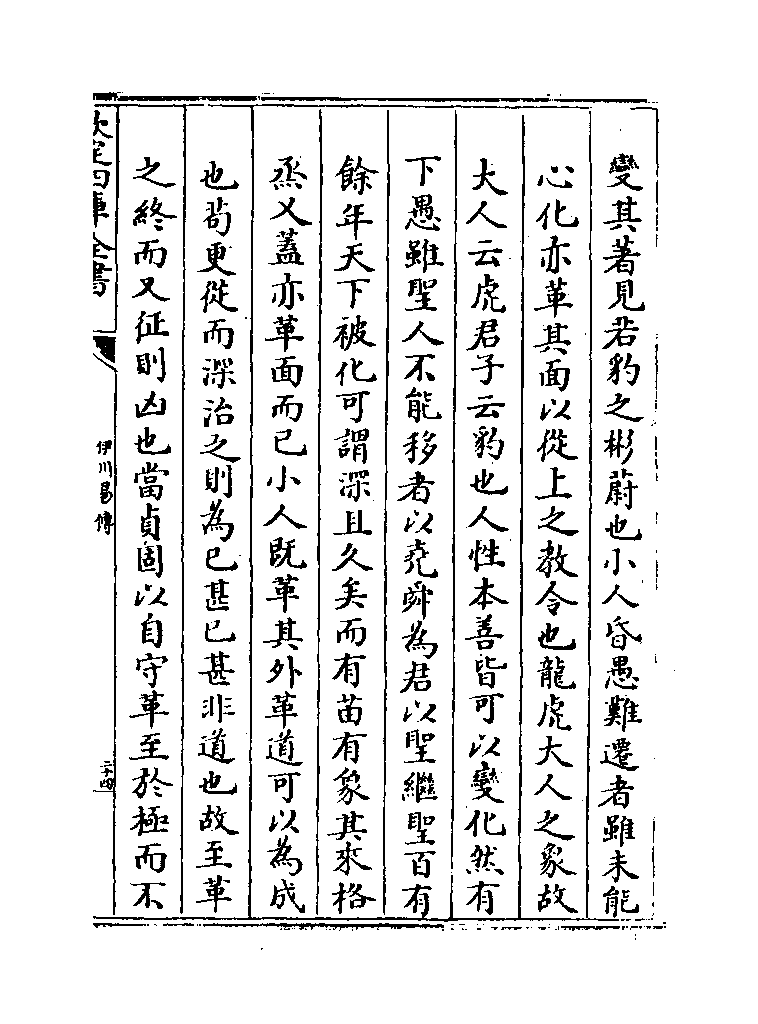 變其著見若豹之彬蔚也小人昏愚難遷者雖未能
心化亦革其面以從上之教令也龍虎大人之象故
大人云虎君子云豹也人性本善皆可以變化然有
下愚雖聖人不能移者以堯舜為君以聖繼聖百有
餘年天下被化可謂深且久矣而有苗有象其來格
烝乂蓋亦革面而已小人既革其外革道可以為成
也茍更從而深治之則為已甚已甚非道也故至革
之終而又征則凶也當貞固以自守革至於極而不
欽定四庫全書
伊川易傳
二十四